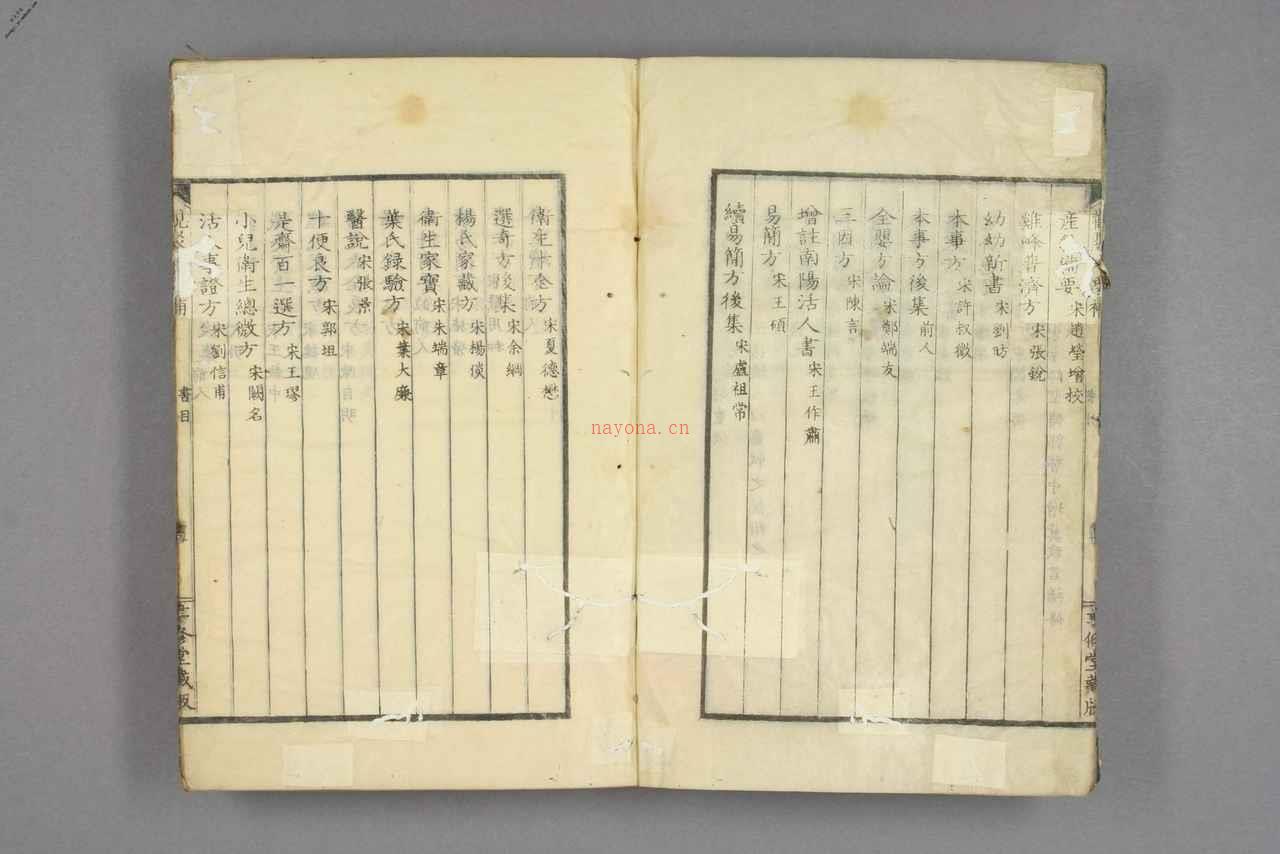 産 要 宋趙瑩增校
雞峰普濟方 宋張銳
幼幼新書 宋劉昉
本事方 宋許叔微
本事方後集 前人
全嬰方論 宋鄭端友
三因方 宋陳言
增註南陽活人書 宋王作肅
易簡方 宋王碩
續易簡方後集 宋盧祖常
堂藏版
衛生十全方 宋夏德懋
選奇方後集 宋余綱
楊氏家藏方 宋楊倓
衛生家寶 宋朱端章
葉氏錄驗方 宋葉大廉
醫說 宋張杲
十便良方 宋郭坦
是齋百一選方 宋王璆
小兒衛生總微方 宋闕名
活人事證方 宋劉信甫
書目
聿修堂藏版
nayona.cn